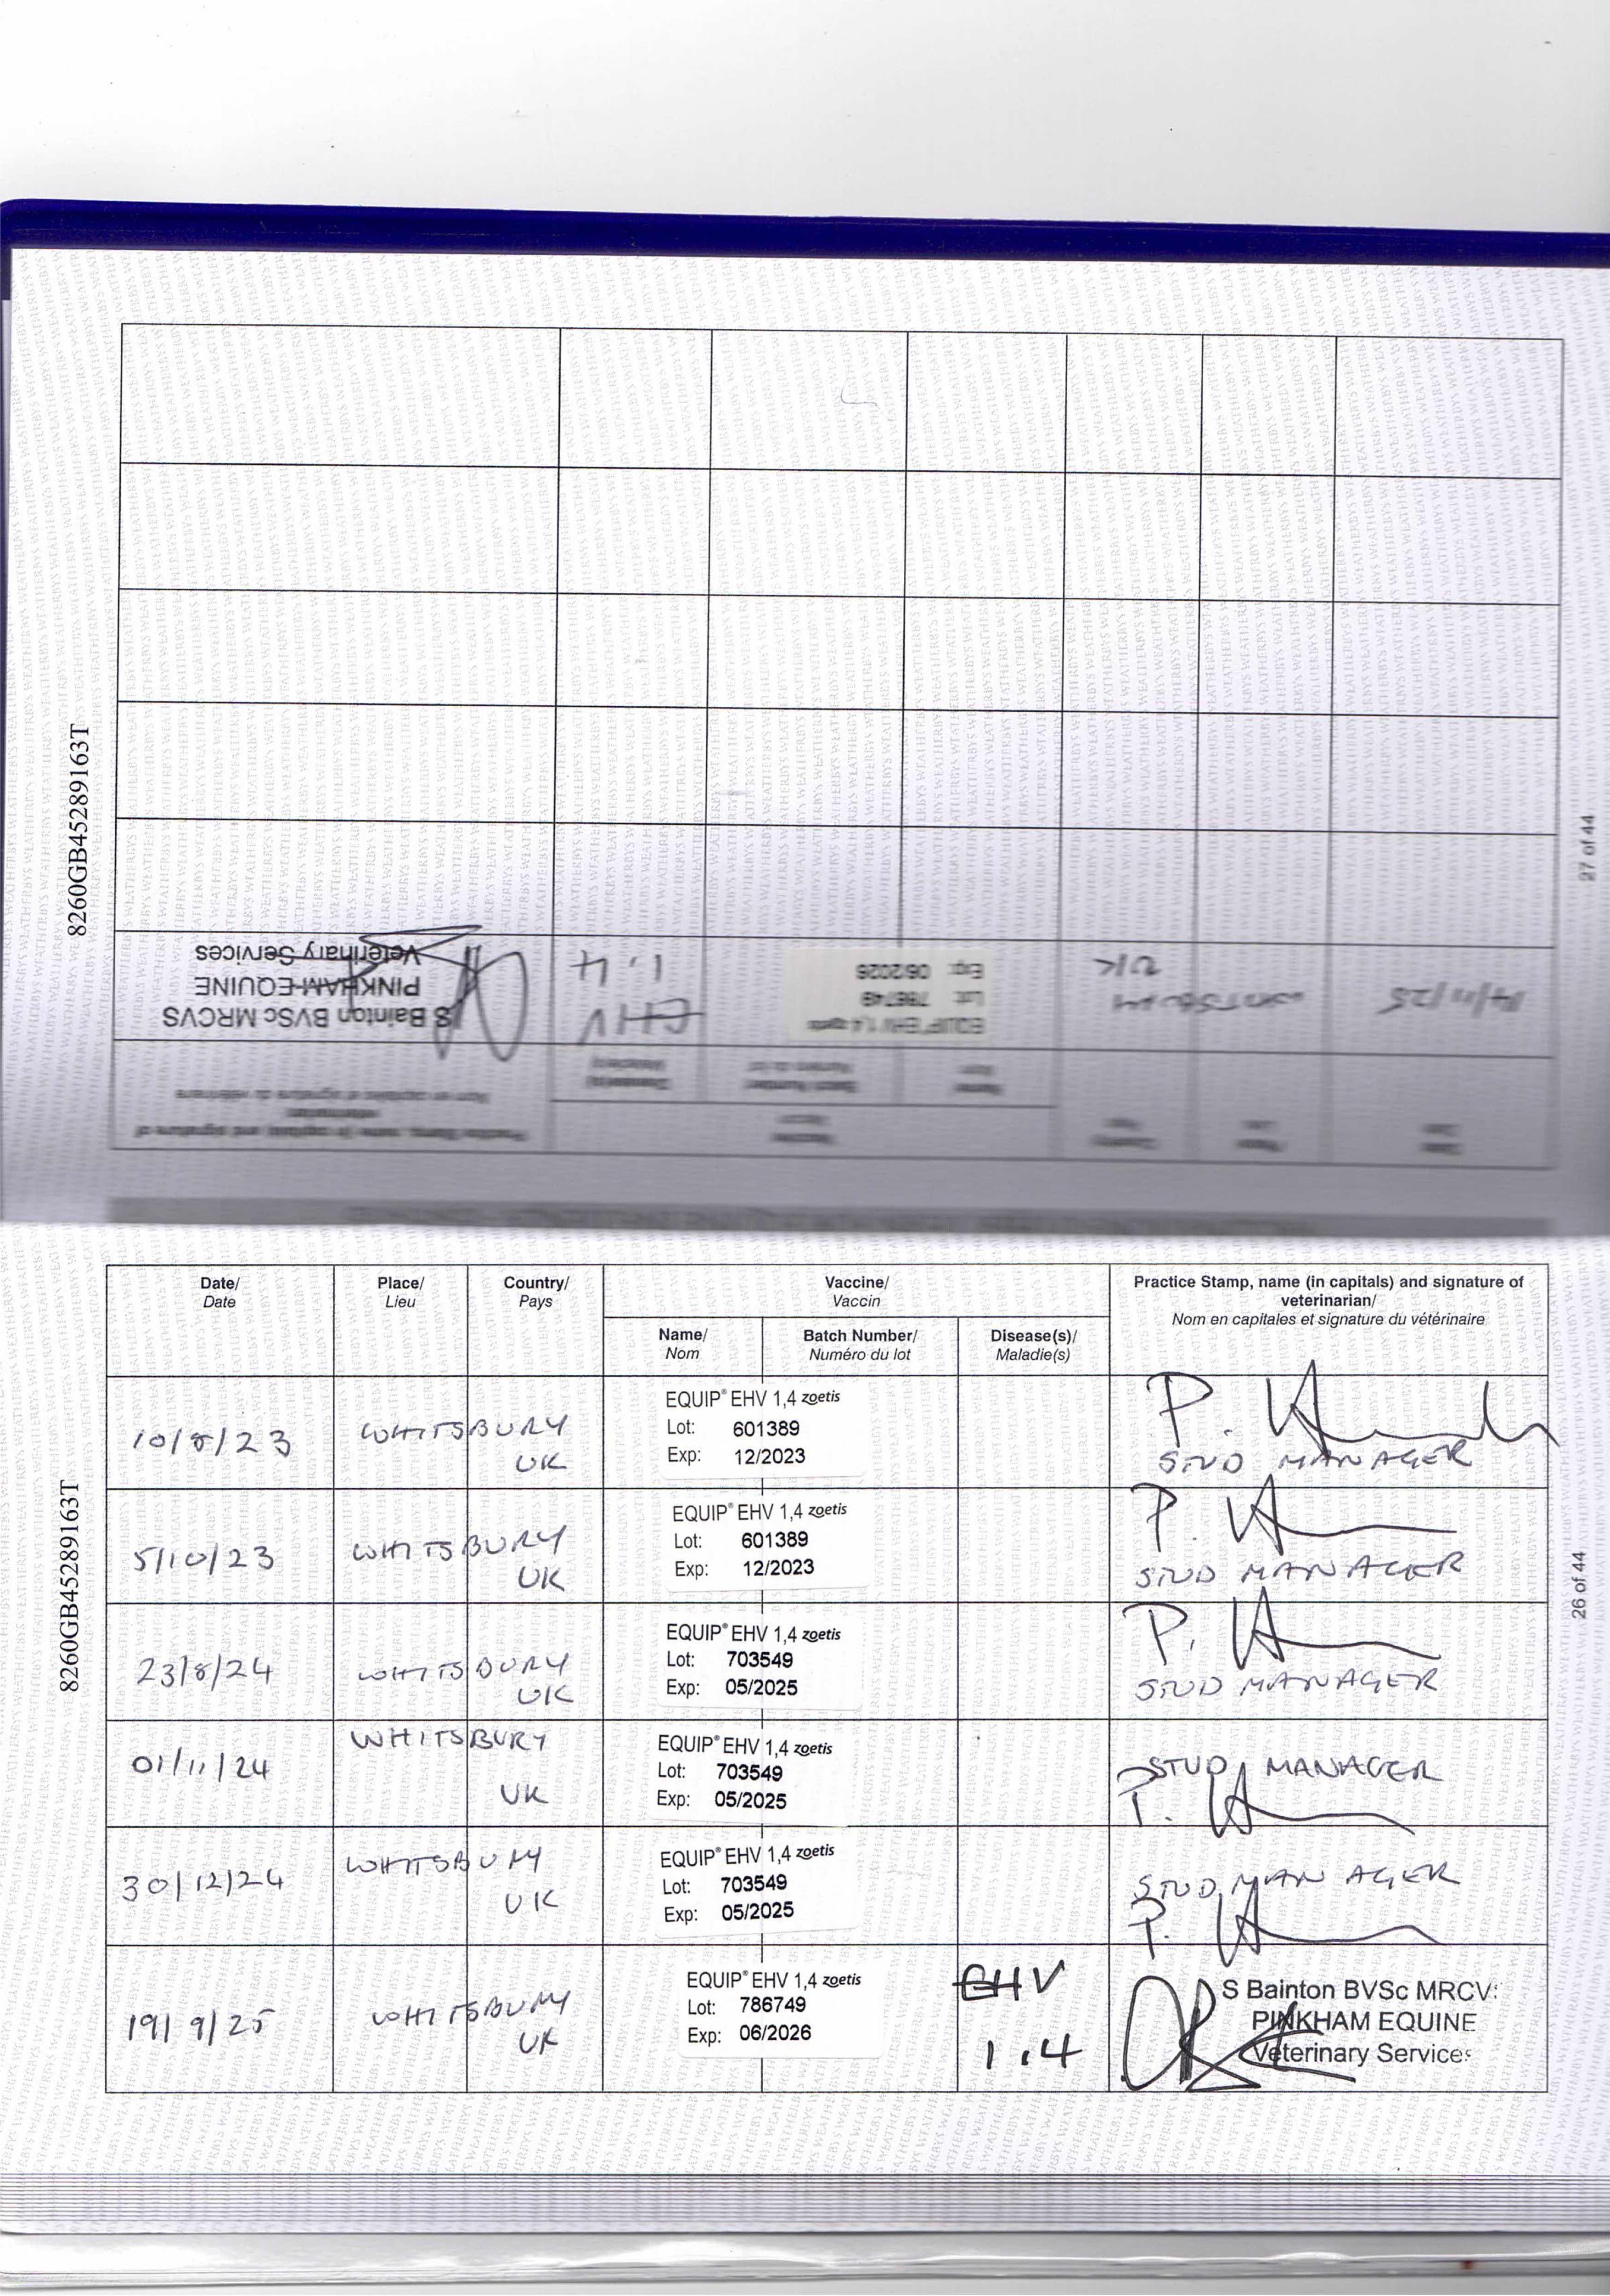 8260GB45289163T
27 of 44
Practice Stamp, name (in capitals) and signature of
veterinarian/
Nom en capitales et signature du vétérinaire
14/11/25
WHITSBURY
UK
EQUIP EHV 1,4 zoetis
Lot: 786749
Exp: 06/2026
EHV
1.4
S Bainton BVSc MRCVS
PINKHAM EQUINE
Veterinary Services
8260GB45289163T
26 of 44
Date/
Date
Place/
Lieu
Country/
Pays
Vaccine/
Vaccin
Name/
Nom
Batch Number/
Numéro du lot
Disease(s)/
Maladie(s)
Practice Stamp, name (in capitals) and signature of
veterinarian/
Nom en capitales et signature du vétérinaire
10/8/23
WHITSBURY
UK
EQUIP® EHV 1,4 zoetis
Lot: 601389
Exp: 12/2023
STUD MANAGER
5/10/23
WHITSBURY
UK
EQUIP® EHV 1,4 zoetis
Lot: 601389
Exp: 12/2023
STUD MANAGER
23/8/24
WHITSBURY
UK
EQUIP® EHV 1,4 zoetis
Lot: 703549
Exp: 05/2025
STUD MANAGER
01/11/24
WHITSBURY
UK
EQUIP® EHV 1,4 zoetis
Lot: 703549
Exp: 05/2025
STUD MANAGER
30/12/24
WHITSBURY
UK
EQUIP® EHV 1,4 zoetis
Lot: 703549
Exp: 05/2025
STUD MANAGER
19/9/25
WHITSBURY
UK
EQUIP® EHV 1,4 zoetis
Lot: 786749
Exp: 06/2026
EHV
1.4
S Bainton BVSc MRCV
PINKHAM EQUINE
Veterinary Services